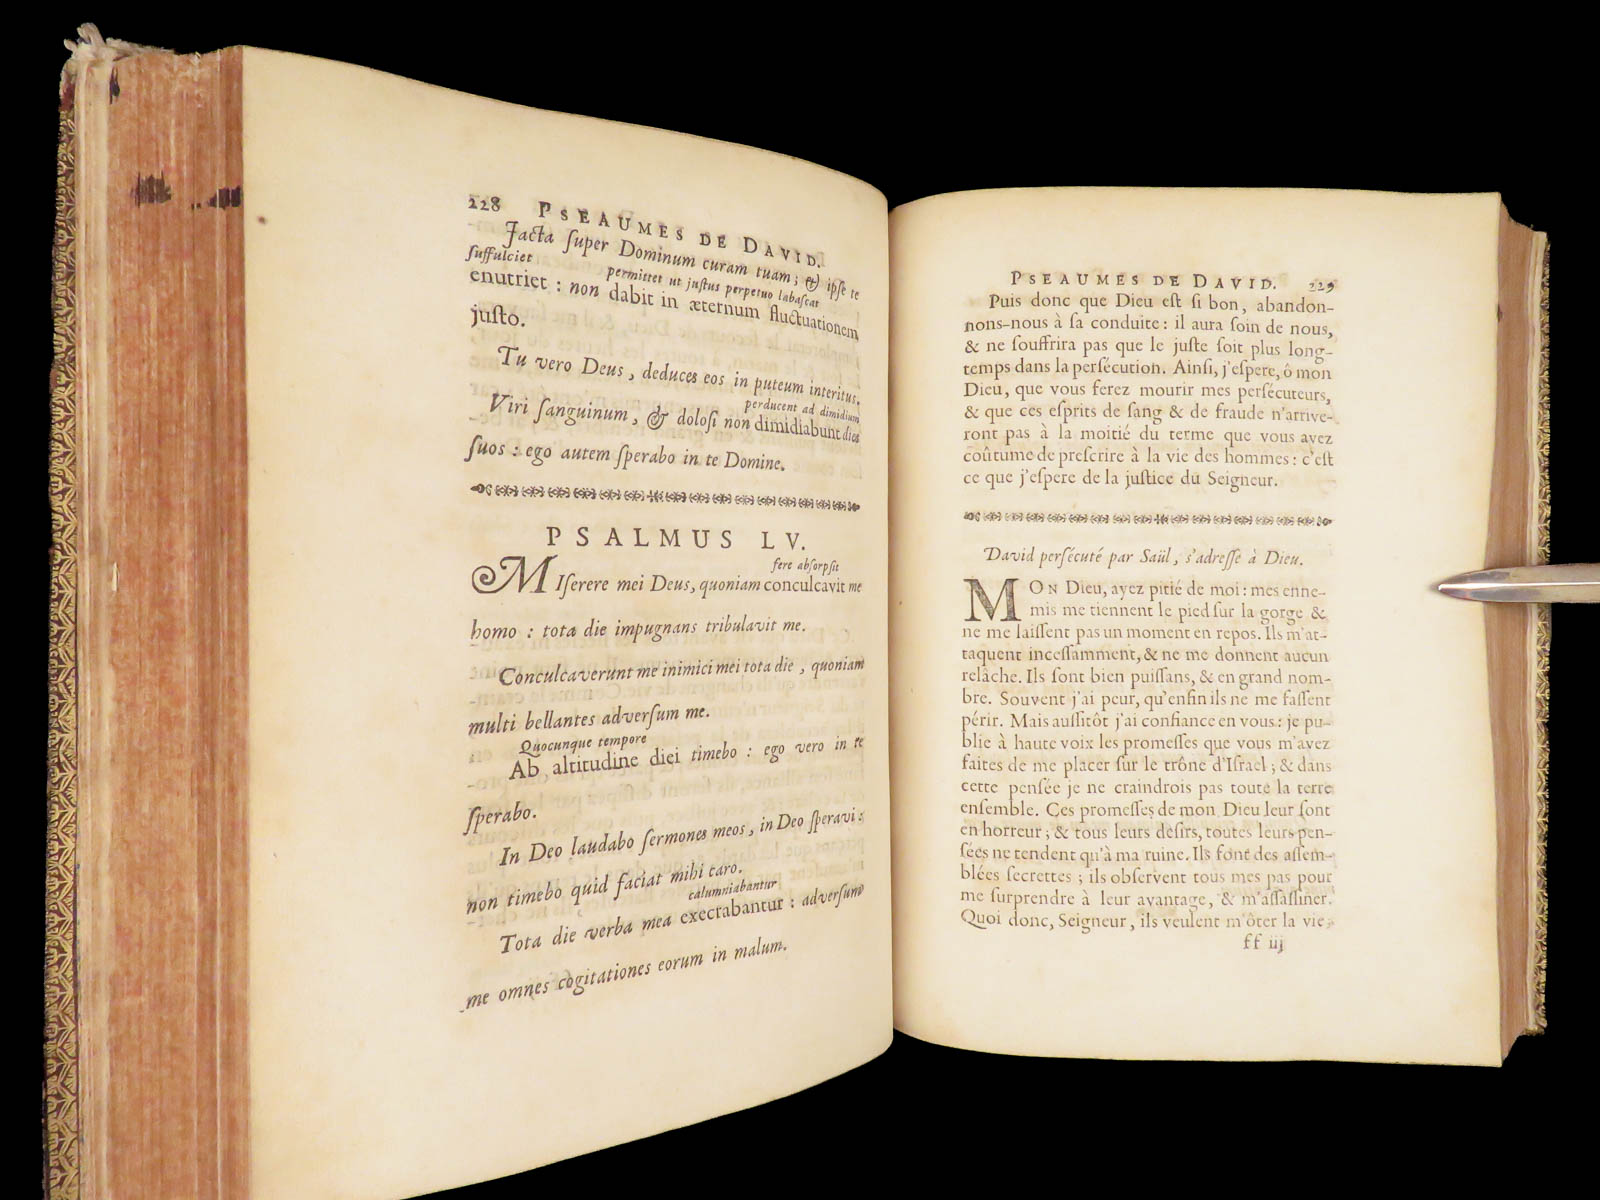 228 PSEAUMES DE DAVID.
Jacta ſuper Dominum curam tuam ; & ipſe te
ſuffulciet permittet ut juſtus perpetuo labaſcat
enutriet : non dabit in æternum fluctuationem
juſto.
Tu vero Deus , deduces eos in puteum interitus.
perducent ad dimidium
Viri ſanguinum , & doloſi non dimidiabunt dies
ſuos : ego autem ſperabo in te Domine.
PSALMUS LV.
fere abſorpſit
MIſerere mei Deus, quoniam conculcavit me
homo : tota die impugnans tribulavit me.
Conculcaverunt me inimici mei tota die , quoniam
multi bellantes adverſum me.
Quocunque tempore
Ab altitudine diei timebo : ego vero in te
ſperabo.
In Deo laudabo ſermones meos , in Deo ſperavi :
non timebo quid faciat mihi caro.
calumniabantur
Tota die verba mea execrabantur : adverſum
me omnes cogitationes eorum in malum.
PSEAUMES DE DAVID. 229
Puis donc que Dieu eſt ſi bon, abandon-
nons-nous à ſa conduite : il aura ſoin de nous,
& ne ſouffrira pas que le juſte ſoit plus long-
temps dans la perſécution. Ainſi, j'eſpere, ô mon
Dieu, que vous ferez mourir mes perſécuteurs,
& que ces eſprits de ſang & de fraude n'arrive-
ront pas à la moitié du terme que vous avez
coûtume de preſcrire à la vie des hommes : c'eſt
ce que j'eſpere de la juſtice du Seigneur.
David perſécuté par Saül, s'adreſſe à Dieu.
MON Dieu, ayez pitié de moi : mes enne-
mis me tiennent le pied ſur la gorge &
ne me laiſſent pas un moment en repos. Ils m'at-
taquent inceſſamment, & ne me donnent aucun
relâche. Ils ſont bien puiſſans, & en grand nom-
bre. Souvent j'ai peur, qu'enfin ils ne me faſſent
périr. Mais auſſitôt j'ai confiance en vous : je pu-
blie à haute voix les promeſſes que vous m'avez
faites de me placer ſur le trône d'Iſrael ; & dans
cette penſée je ne craindrois pas toute la terre
enſemble. Ces promeſſes de mon Dieu leur ſont
en horreur ; & tous leurs deſirs, toutes leurs pen-
ſées ne tendent qu'à ma ruine. Ils font des aſſem-
blées ſecrettes ; ils obſervent tous mes pas pour
me ſurprendre à leur avantage, & m'aſſaſſiner.
Quoi donc, Seigneur, ils veulent m'ôter la vie,
ff iij